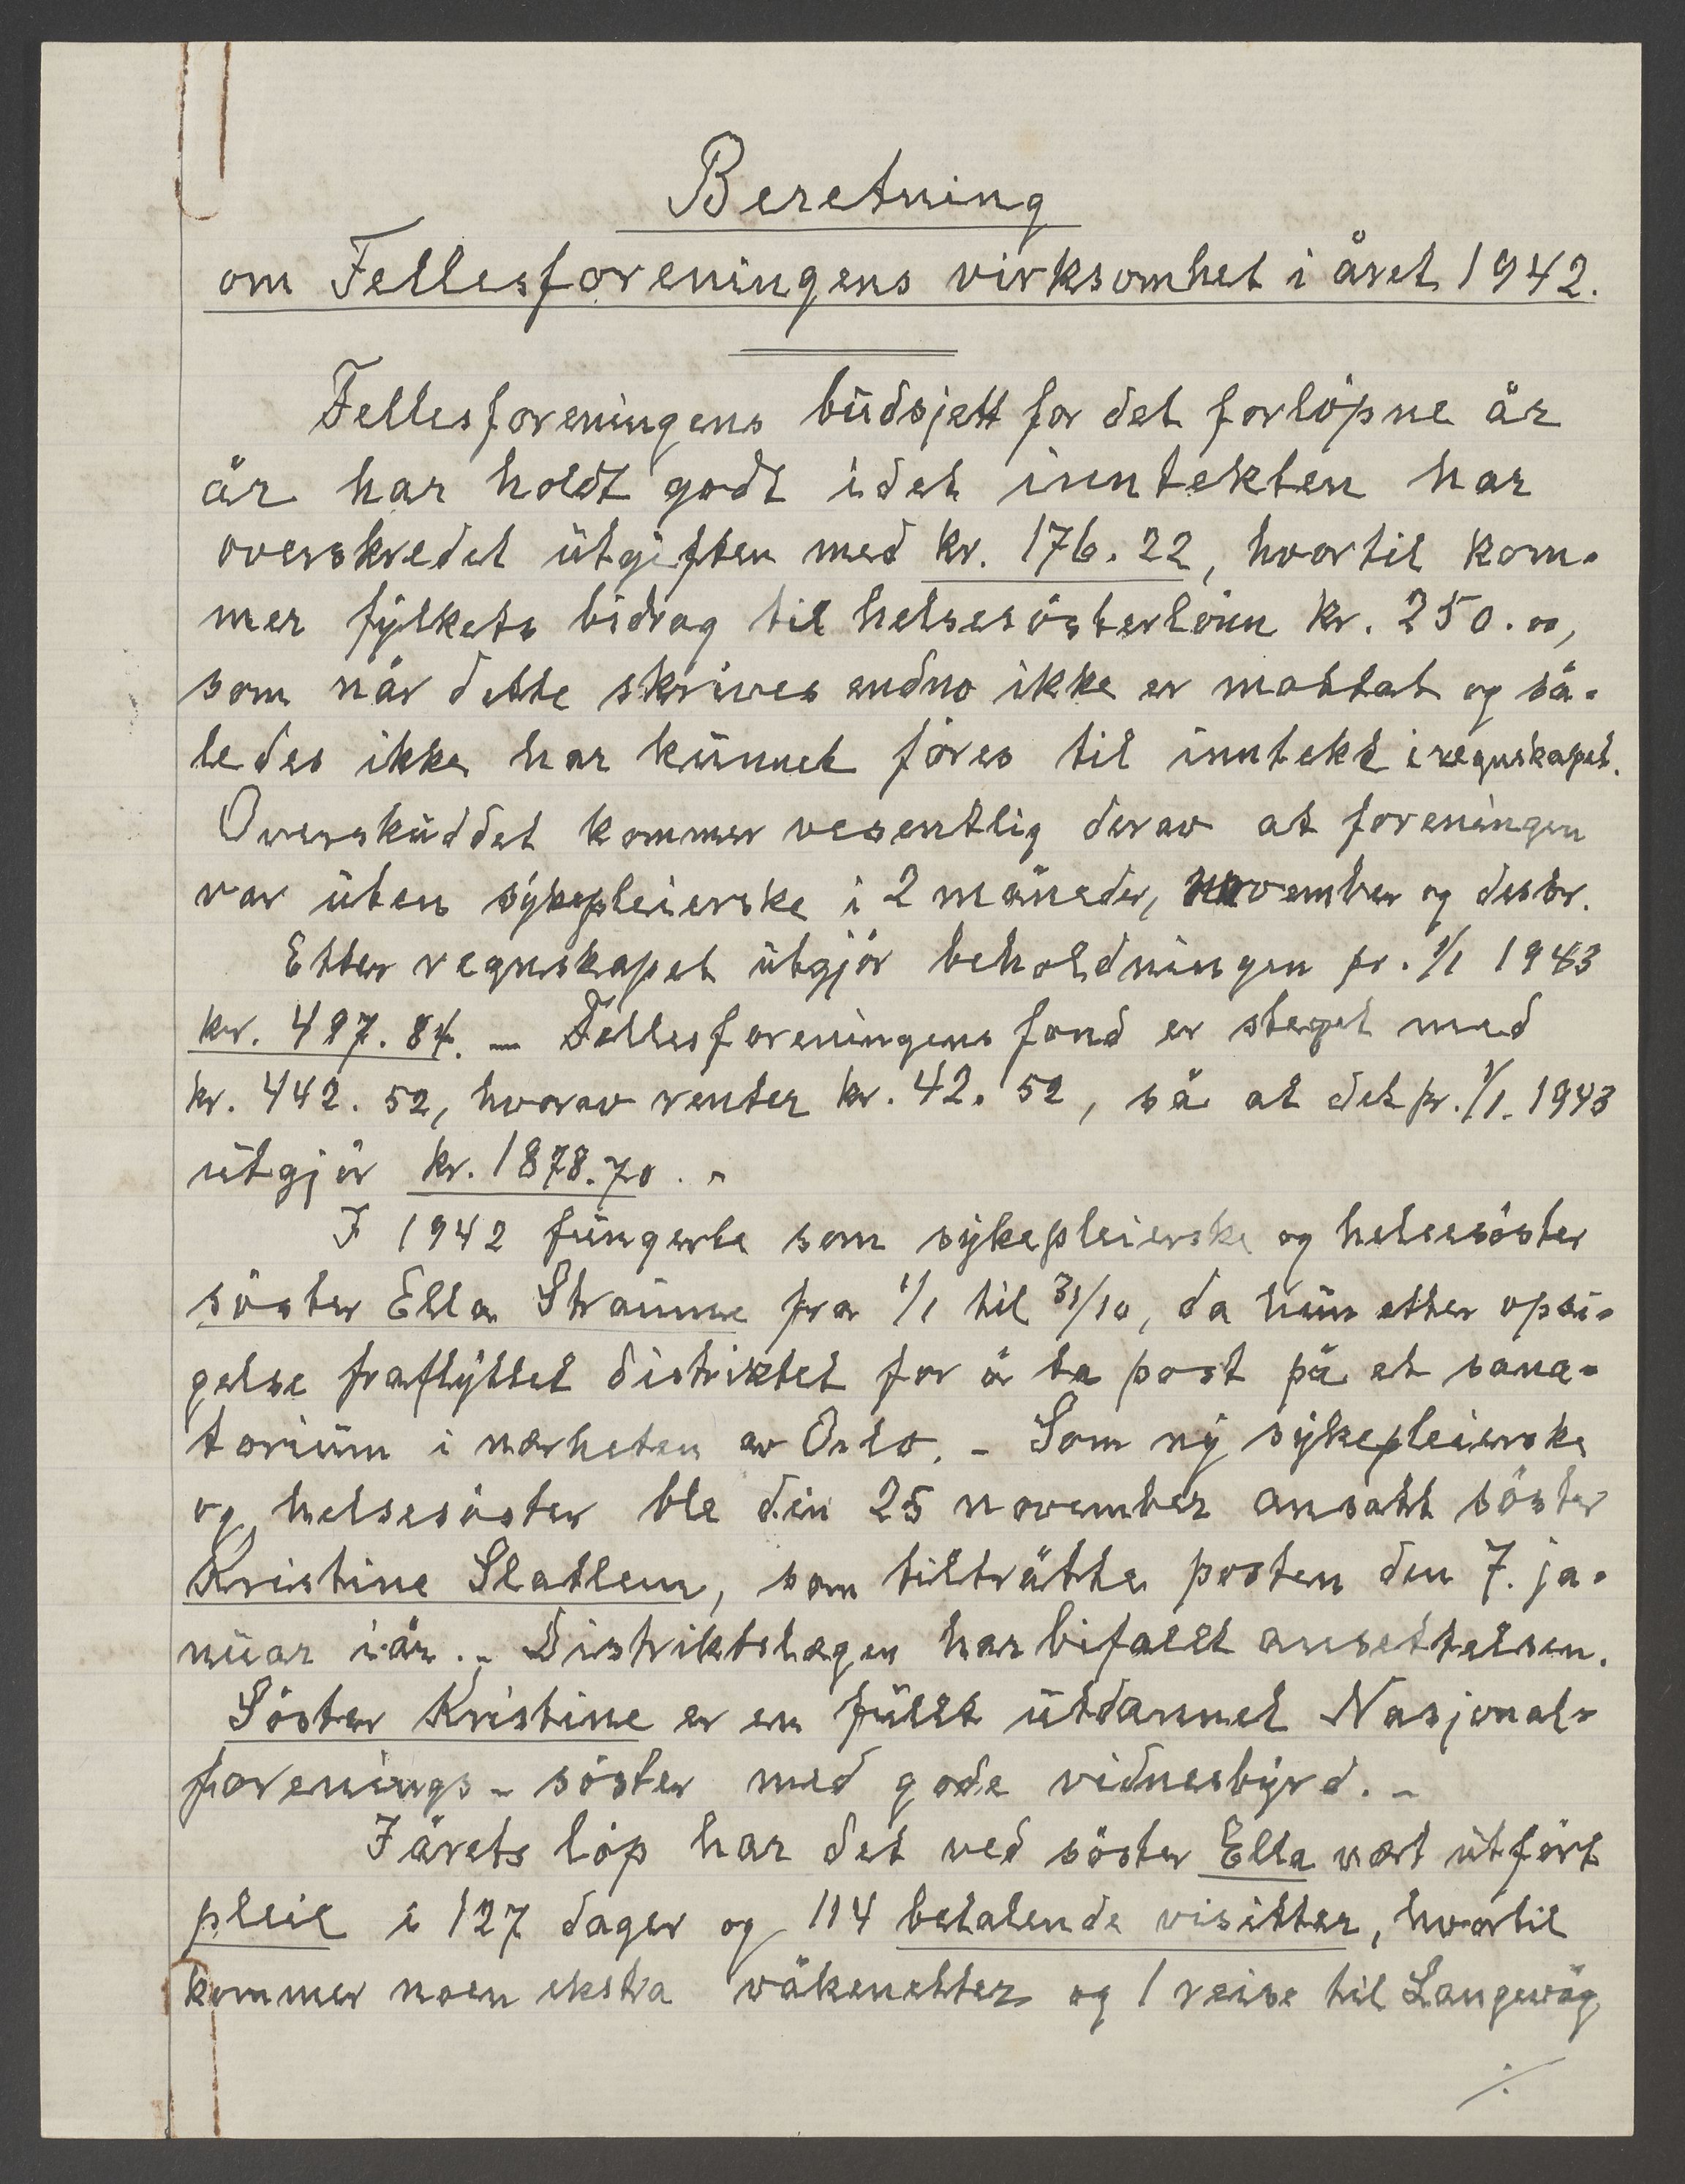 Beretning
om Fellesforeningens virksomhet i året 1942.
Fellesforeningens budsjett for det forløpne år
år har holdt godt idet inntekten har
overskredet utgiften med kr. 176.22, hvortil kom-
mer fylkets bidrag til helsesösterlönn kr. 250.00,
som når dette skrives endno ikke er mottat og så-
ledes ikke har kunnet föres til inntekt i regnskapet.
Overskuddet kommer vesentlig derav at foreningen
var uten sykepleierske i 2 måneder, november og desbr.
Etter regnskapet utgjör beholdningen pr. 1/1 1943
kr. 497.84. — Fellesforeningens fond er steget med
kr. 442.52, hvorav renter kr. 42.52, så at det pr. 1/1. 1943
utgjör kr. 1878.70. -
I 1942 fungerte som sykepleierske og helsesöster
söster Ella Straume fra 1/1 til 31/10, da hun etter opsi-
gelse fraflyttet distriktet for å ta post på et sana-
torium i nærheten av Oslo. - Som ny sykepleierske
og helsesöster ble den 25 november ansatt söster
Kristine Slatlem, som tilträtte posten den 7. ja-
nuar i år. - Distriktslægen har bifallt ansettelsen.
Söster Kristine er en fullt utdannet Nasjonal-
forenings- söster med gode vidnesbyrd. -
I årets löp har det ved söster Ella vært utfört
pleie i 127 dager og 114 betalende visitter, hvortil
kommer noen ekstra våkenetter og 1 reise til Langevåg
./.